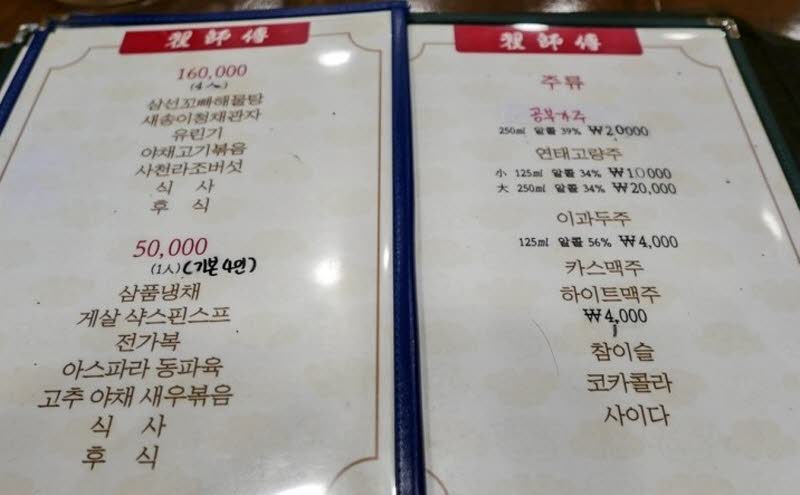 翟師傅
160,000
(4人)
삼선꼬빠해물탕
새송이청채관자
유린기
야채고기볶음
사천라조버섯
식 사
후 식
50,000
(1人) (기본 4인)
삼품냉채
게살 샥스핀스프
전가복
아스파라 동파육
고추 야채 새우볶음
식 사
후 식
翟師傅
주류
공부가주
250㎖ 알콜 39% ₩20000
연태고량주
小 125㎖ 알콜 34% ₩10000
大 250㎖ 알콜 34% ₩20,000
이과두주
125㎖ 알콜 56% ₩4,000
카스맥주
하이트맥주
₩4,000
참이슬
코카콜라
사이다